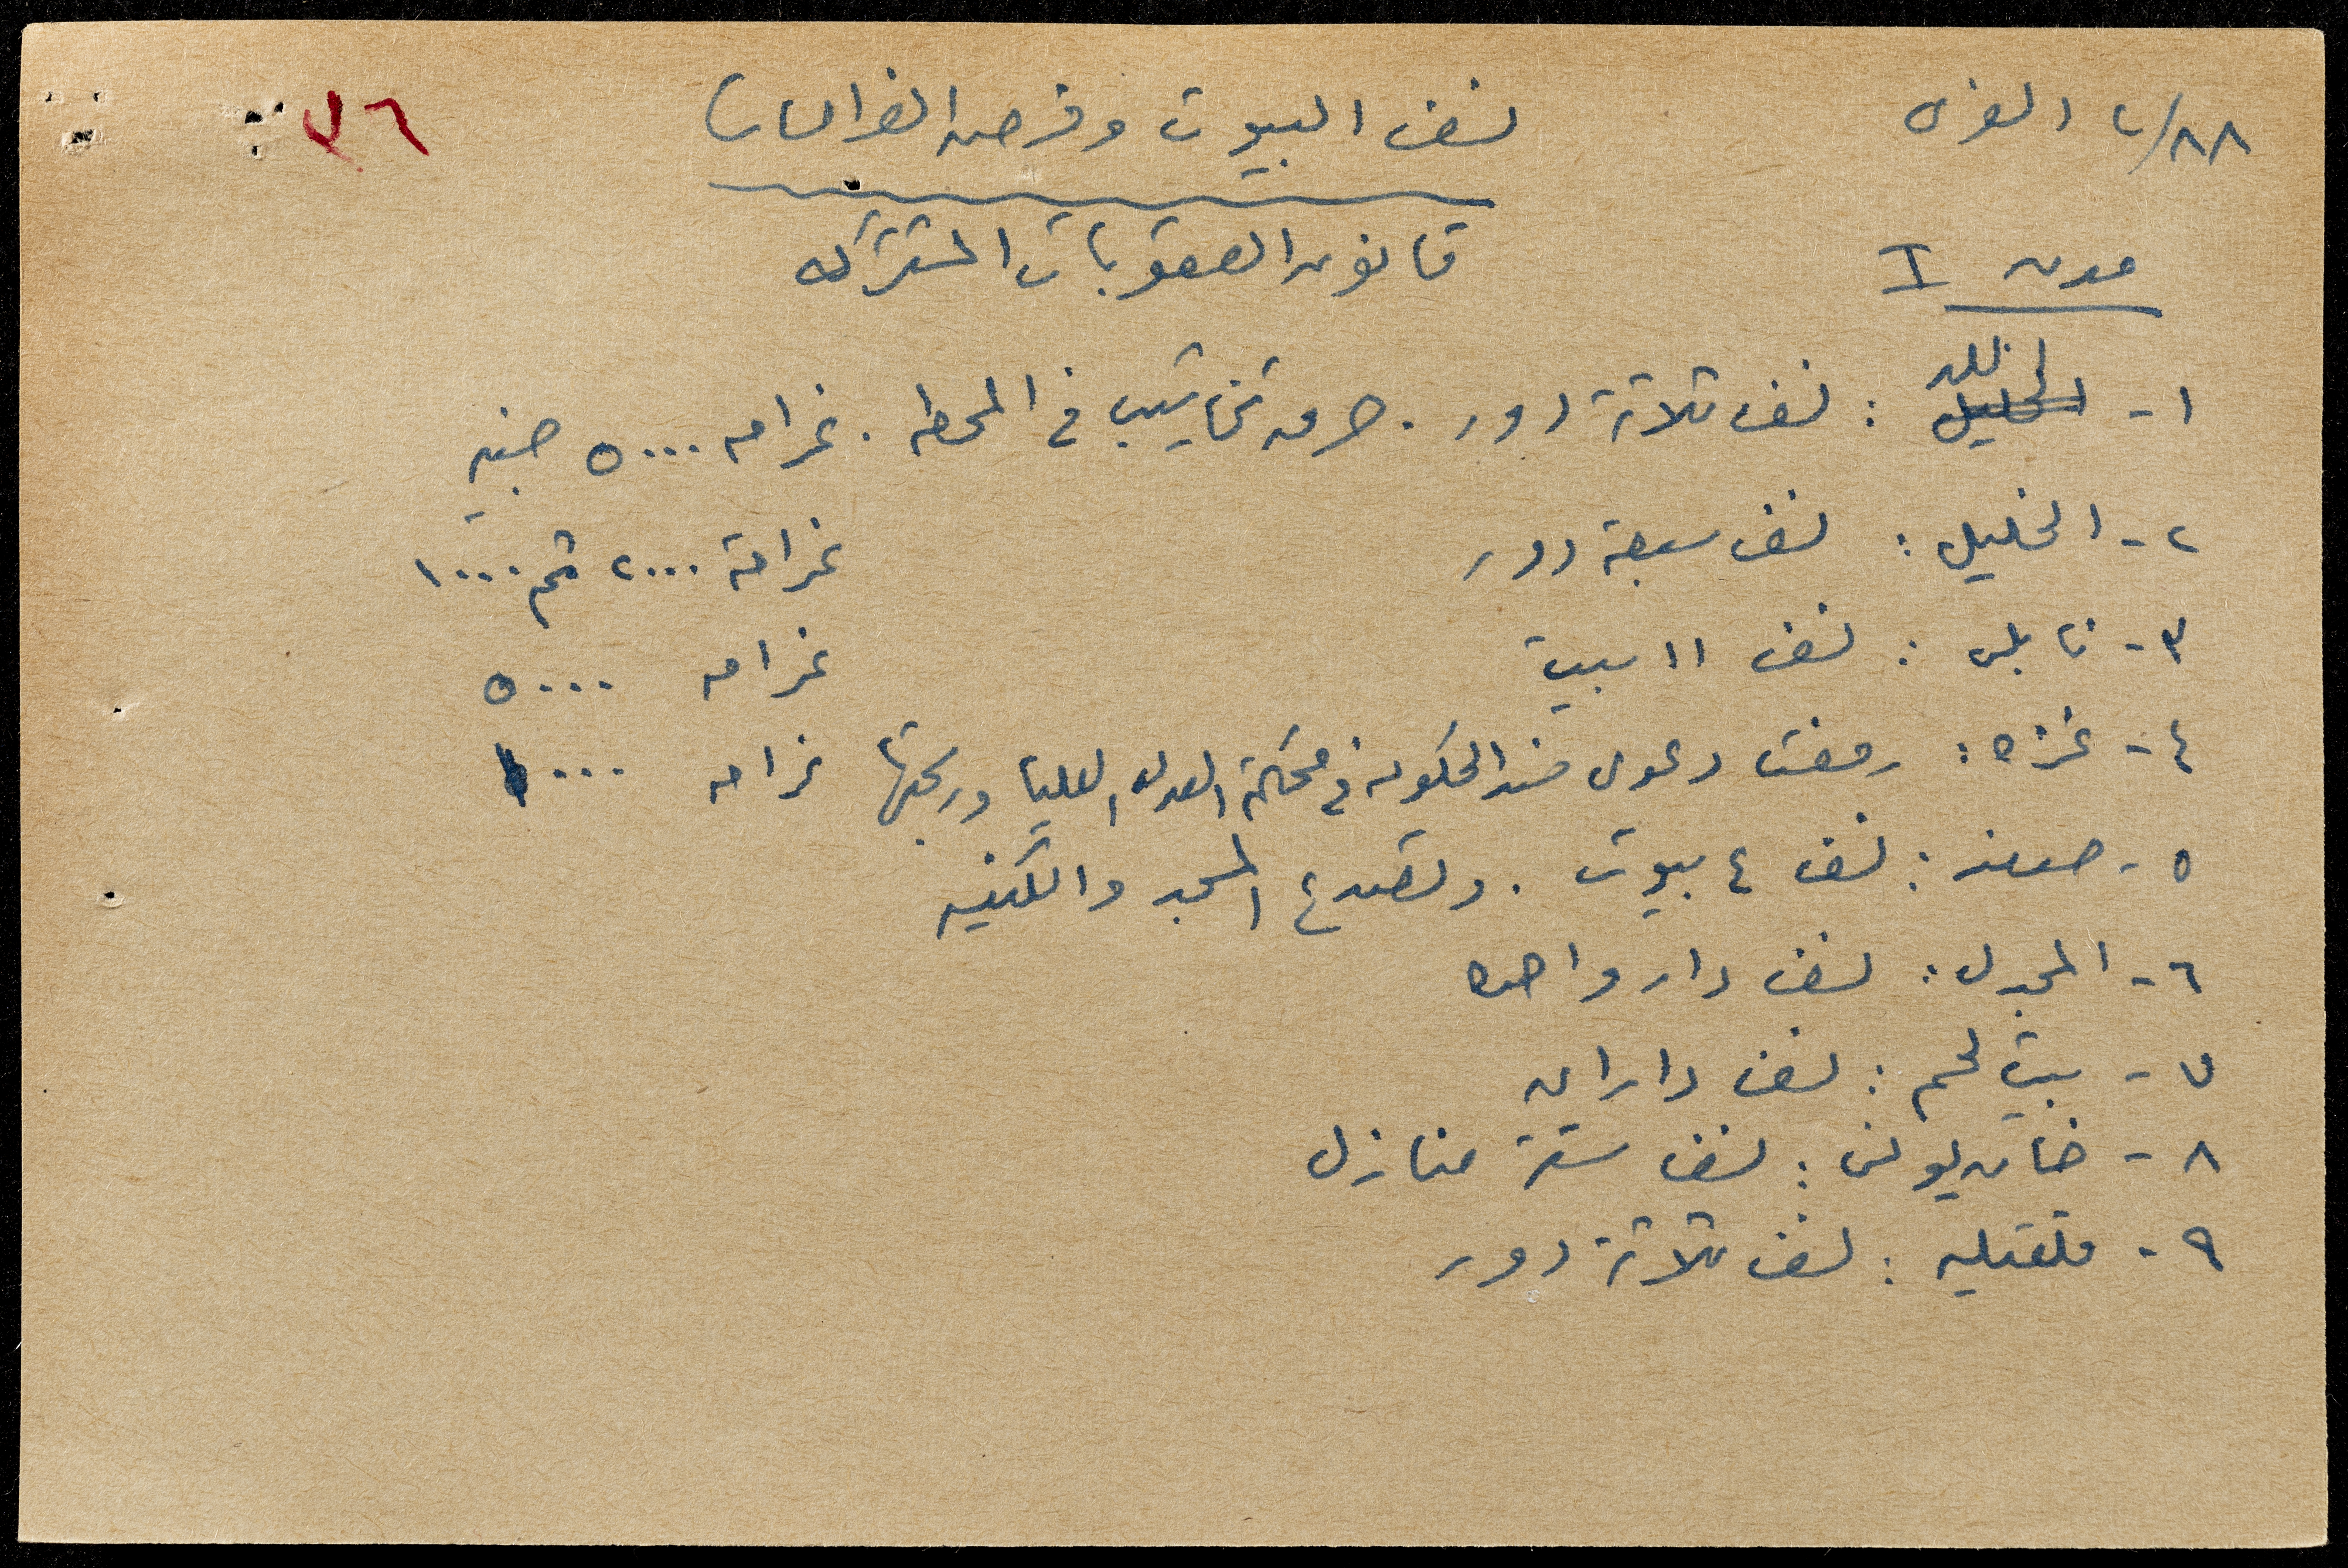 ٨٨/ب الغزى
نسف البيوت وفرض الغرامات
٣٦
مدن I
قانون العقوبات المشتركه
اللد
١- الخليل : نسف ثلاثة دور . حرق تخاشيب في المحطه . غرامه ٥٠٠٠ جنيه
٢- الخليل : نسف سبعة دور غرامة ٢٠٠٠ ثم ١٠٠٠
٣- نابلس : نسف ١١ بيت غرامه ٥٠٠٠
٤- غزه : رفعت دعوى ضد الحكومه في محكمة العدل العليا وربحتها غرامه ١٠٠٠
٥- صفد : نسف ٤ بيوت . وتصدع المسجد والكنيسه
٦- المجدل : نسف دار واحده
٧- بيت لحم : نسف داران
٨- خان يونس : نسف ستة منازل
٩- قلقيليه : نسف ثلاثة دور